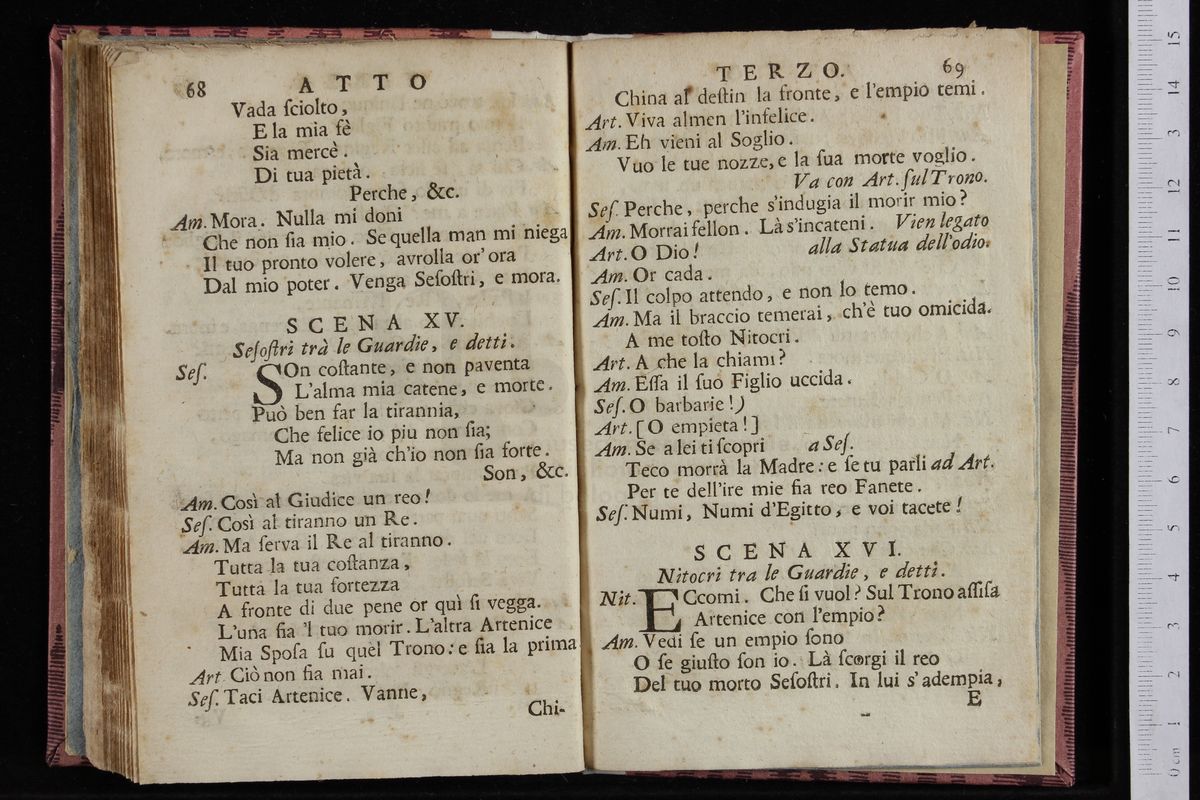 68 ATTO
Vada ſciolto,
E la mia fè
Sia mercè.
Di tua pietà.
Perche, &c.
Am. Mora. Nulla mi doni
Che non ſia mio. Se quella man mi niega
Il tuo pronto volere, avrolla or' ora
Dal mio poter. Venga Seſoſtri, e mora.
SCENA XV.
Seſoſtri trà le Guardie, e detti.
Seſ. SOn coſtante, e non paventa
L'alma mia catene, e morte.
Può ben far la tirannia,
Che felice io piu non ſia;
Ma non già ch'io non ſia forte.
Son, &c.
Am. Così al Giudice un reo!
Seſ. Così al tiranno un Re.
Am. Ma ſerva il Re al tiranno.
Tutta la tua coſtanza,
Tutta la tua fortezza
A fronte di due pene or quì ſi vegga.
L'una ſia 'l tuo morir. L'altra Artenice
Mia Spoſa ſu quel Trono: e ſia la prima
Art Ciò non fia mai.
Seſ. Taci Artenice. Vanne,
Chi-
TERZO. 69
China al deſtin la fronte, e l'empio temi.
Art. Viva almen l'infelice.
Am. Eh vieni al Soglio.
Vuo le tue nozze, e la ſua morte voglio.
Va con Art. ſul Trono.
Seſ. Perche, perche s'indugia il morir mio?
Am. Morrai fellon. Là s'incateni. Vien legato
Art. O Dio! alla Statua dell'odio.
Am. Or cada.
Seſ. Il colpo attendo, e non lo temo.
Am. Ma il braccio temerai, ch'è tuo omicida.
A me toſto Nitocri.
Art. A che la chiami?
Am. Eſſa il ſuo Figlio uccida.
Seſ. O barbarie!)
Art. [O empieta!]
Am. Se a lei ti ſcopri a Seſ.
Teco morrà la Madre: e ſe tu parli ad Art.
Per te dell'ire mie fia reo Fanete.
Seſ. Numi, Numi d'Egitto, e voi tacete!
SCENA XVI.
Nitocri tra le Guardie, e detti.
Nit. ECcomi. Che ſi vuol? Sul Trono aſſiſa
Artenice con l'empio?
Am. Vedi ſe un empio ſono
O ſe giuſto ſon io. Là ſcorgi il reo
Del tuo morto Seſoſtri. In lui s'adempia,
E
15
14
13
12
11
10
9
8
7
6
5
4
3
2
1
0 cm